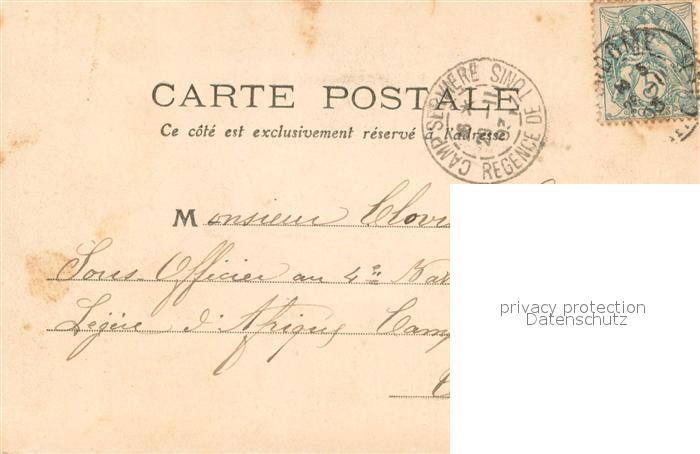 CARTE POSTALE
Ce côté est exclusivement réservé à l'adresse
CAMP-SERVIÈRE
REGENCE DE TUNIS
Monsieur Clovis
Sous-Officier au 4e
Légère d'Afrique Camp
privacy protection
Datenschutz